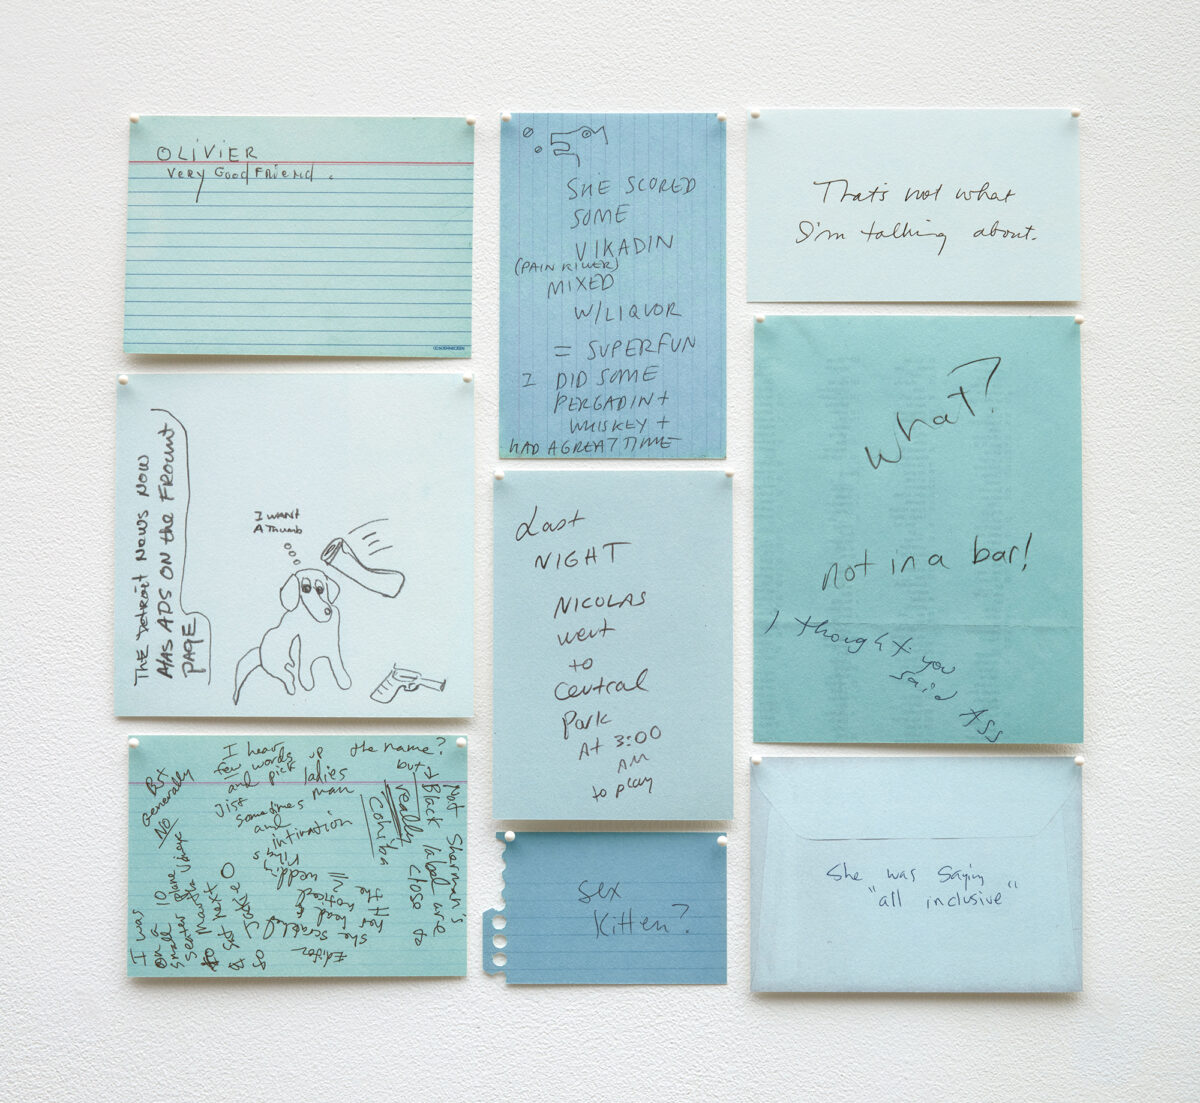 OLIVIER
VERY GOOD FRIEND.
SHE SCORED
SOME
VIKADIN
(PAIN KILLER)
MIXED
W/LIQUOR
= SUPERFUN
I DID SOME
PERCADIN +
WHISKEY +
HAD A GREAT TIME
That's not what
I'm talking about.
THE Detroit NEWS NOW
HAS ADS ON the FROUNT
PAGE
I WANT
A Thumb
Last
NIGHT
NICOLAS
went
to
Central
Park
At 3:00
AM
to play
what?
not in a bar!
I thought you
said
I hear
few words
and pick up
Jist
sometimes
and
the name?
but
ladies
man
really
Cohiba
Not Sherman's
Black label are
close to
But
Generally
NO
I was
on a 10
small plane
seater
sat next
Editor
she
noticed
sex
kitten?
she was saying
"all inclusive"